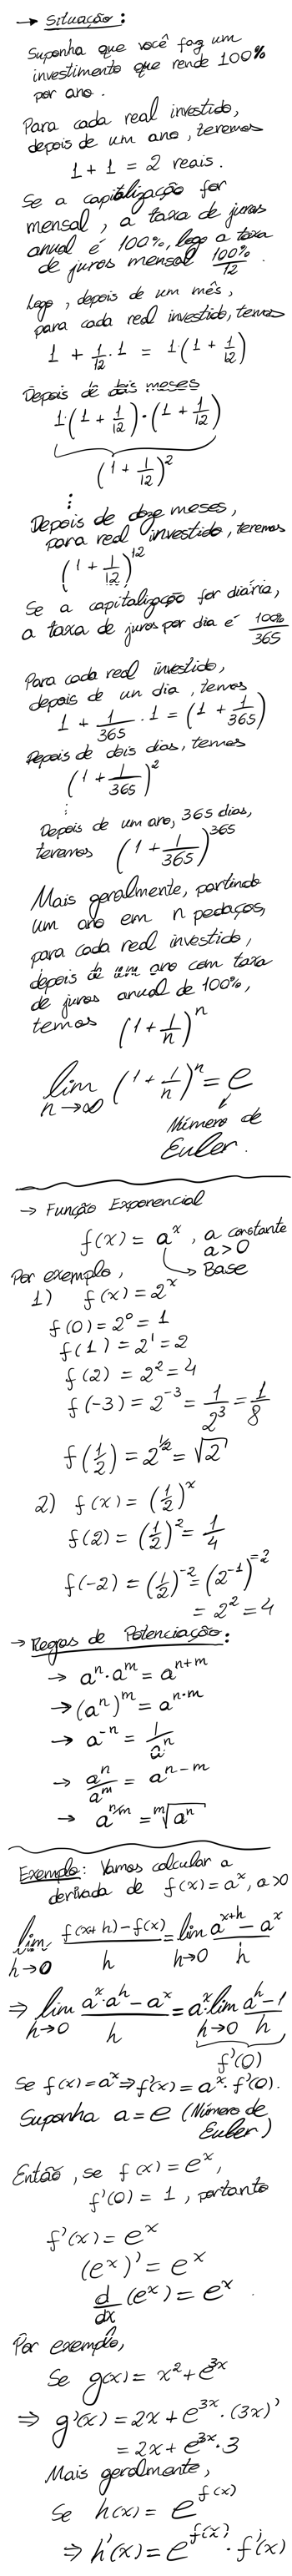 → Situação:
Suponha que você faz um
investimento que rende 100%
por ano.
Para cada real investido,
depois de um ano, teremos
1 + 1 = 2 reais.
Se a capitalização for
mensal, a taxa de juros
anual é 100%, logo a taxa
de juros mensal 100%/12.
Logo, depois de um mês,
para cada real investido, temos
1 + 1/12 · 1 = 1·(1 + 1/12)
Depois de dois meses
1·(1 + 1/12)·(1 + 1/12)
(1 + 1/12)²
⋮
Depois de doze meses,
para real investido, teremos
(1 + 1/12)¹²
Se a capitalização for diária,
a taxa de juros por dia é 100%/365
Para cada real investido,
depois de um dia, temos
1 + 1/365 · 1 = (1 + 1/365)
Depois de dois dias, temos
(1 + 1/365)²
⋮
Depois de um ano, 365 dias,
teremos (1 + 1/365)³⁶⁵
Mais geralmente, partindo
um ano em n pedaços,
para cada real investido,
depois de um ano com taxa
de juros anual de 100%,
temos (1 + 1/n)ⁿ
lim n→∞ (1 + 1/n)ⁿ = e
Número de
Euler.
→ Função Exponencial
f(x) = aˣ, a constante
a>0
→ Base
Por exemplo,
1) f(x) = 2ˣ
f(0) = 2⁰ = 1
f(1) = 2¹ = 2
f(2) = 2² = 4
f(-3) = 2⁻³ = 1/2³ = 1/8
f(1/2) = 2^(1/2) = √2
2) f(x) = (1/2)ˣ
f(2) = (1/2)² = 1/4
f(-2) = (1/2)⁻² = (2⁻¹)⁻²
= 2² = 4
→ Regras de Potenciação:
→ aⁿ·aᵐ = aⁿ⁺ᵐ
→ (aⁿ)ᵐ = a^(n·m)
→ a⁻ⁿ = 1/aⁿ
→ aⁿ/aᵐ = aⁿ⁻ᵐ
→ a^(n/m) = ᵐ√aⁿ
Exemplo: Vamos calcular a
derivada de f(x) = aˣ, a>0
lim h→0 (f(x+h) − f(x))/h = lim h→0 (aˣ⁺ʰ − aˣ)/h
⇒ lim h→0 (aˣ·aʰ − aˣ)/h = aˣ·lim h→0 (aʰ − 1)/h
f'(0)
Se f(x) = aˣ ⇒ f'(x) = aˣ·f'(0).
Suponha a = e (Número de
Euler)
Então, se f(x) = eˣ,
f'(0) = 1, portanto
f'(x) = eˣ
(eˣ)' = eˣ
d/dx (eˣ) = eˣ.
Por exemplo,
Se g(x) = x² + e³ˣ
⇒ g'(x) = 2x + e³ˣ·(3x)'
= 2x + e³ˣ·3
Mais geralmente,
Se h(x) = e^f(x)
⇒ h'(x) = e^f(x)·f'(x)